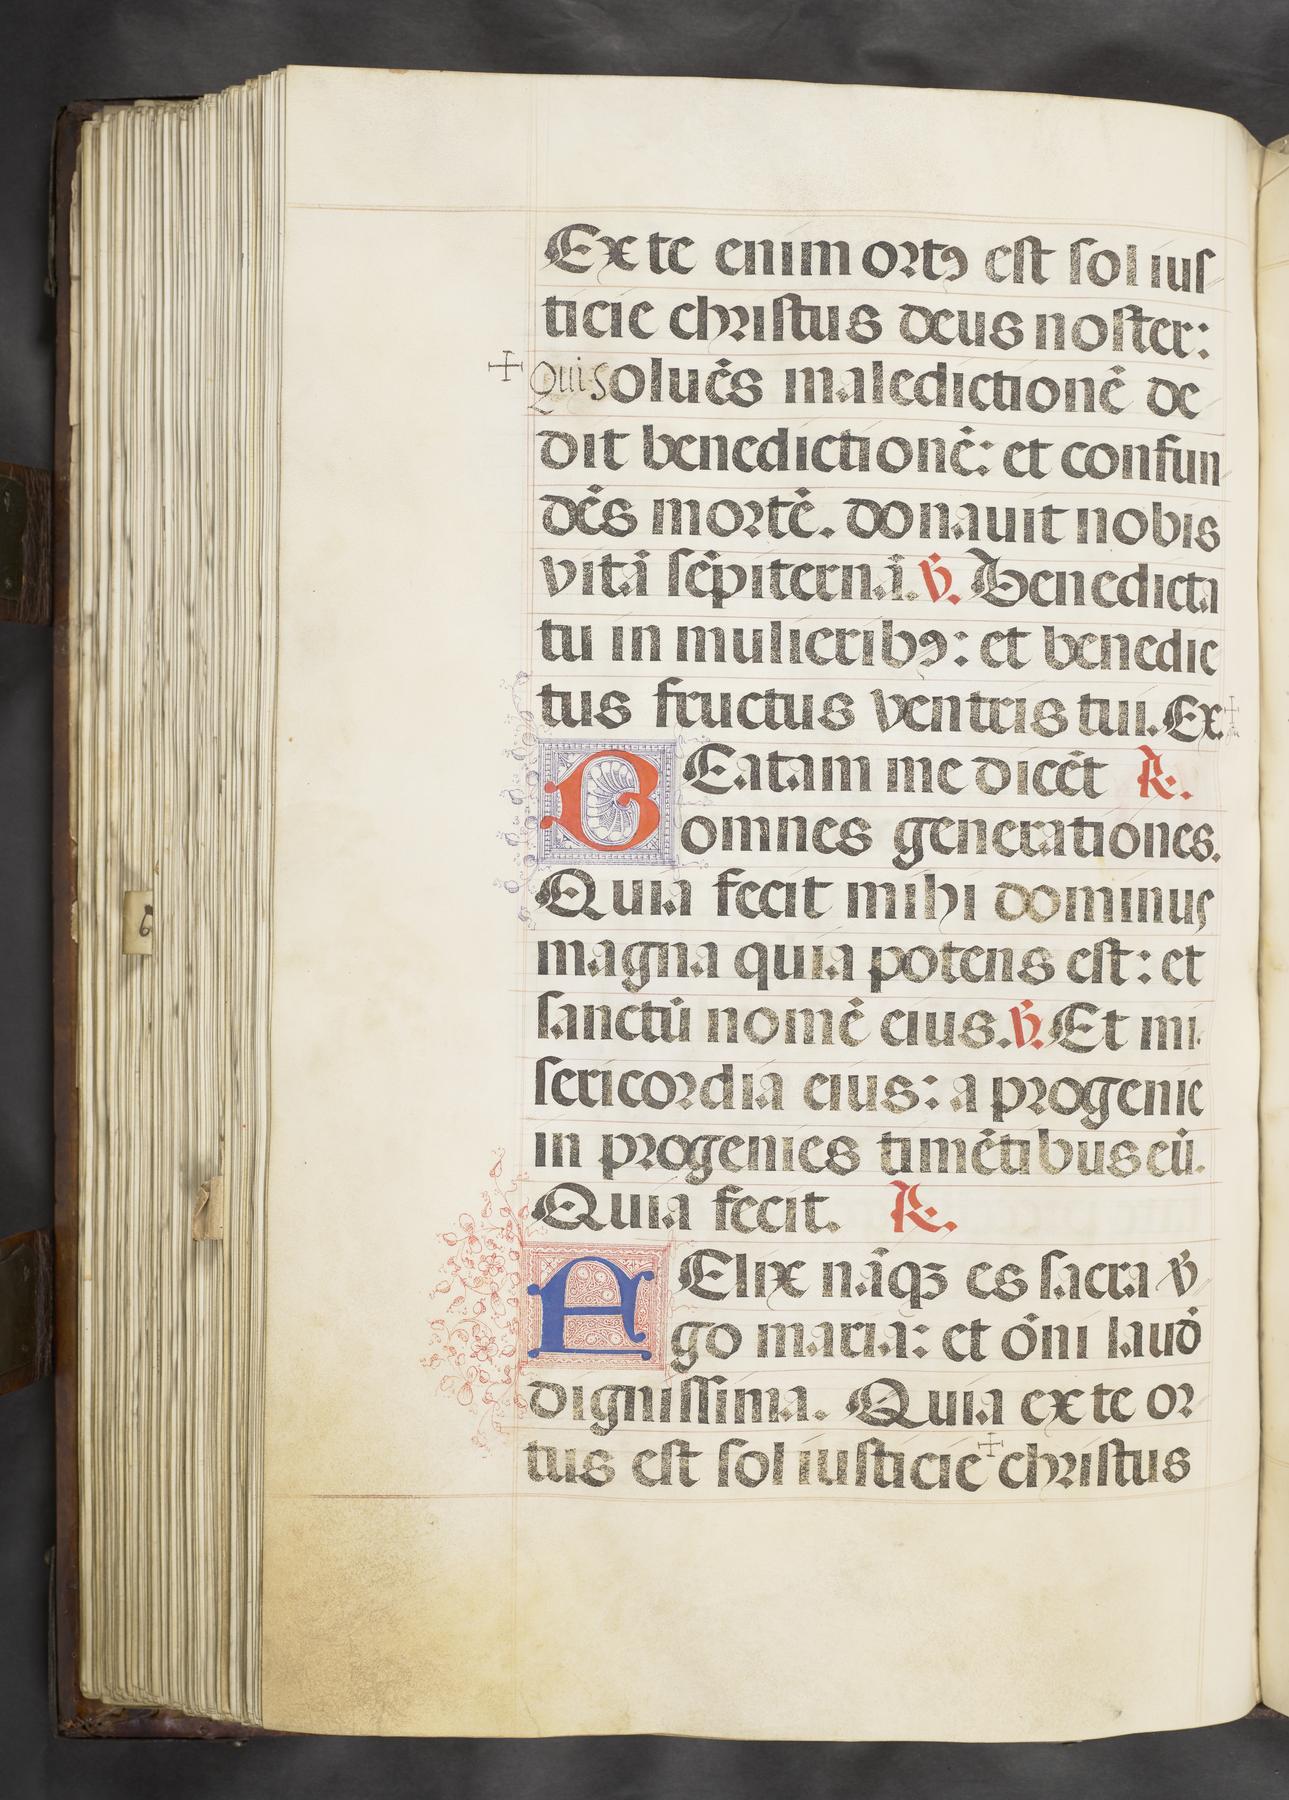 Ex te enim ortꝰ est sol ius
ticie christus deus noster:
Qui solue᷑s maledictionē de
dit benedictionē: et confun
dēs mortē. donauit nobis
vitā sēpiternā. ℣. Benedicta
tu in mulieribꝰ: et benedic
tus fructus ventris tui. Ex.
BEatam me dicēt ℟.
omnes generationes.
Quia fecit mihi dominus
magna quia potens est: et
sanctū nomē eius. ℣. Et mi
sericordia eius: a progenie
in progenies timētibus eū.
Quia fecit. ℟.
FElix nāqꝫ es sacra v̄
go maria: et ōni laud̄
dignissima. Quia ex te or
tus est sol iusticie christus
6